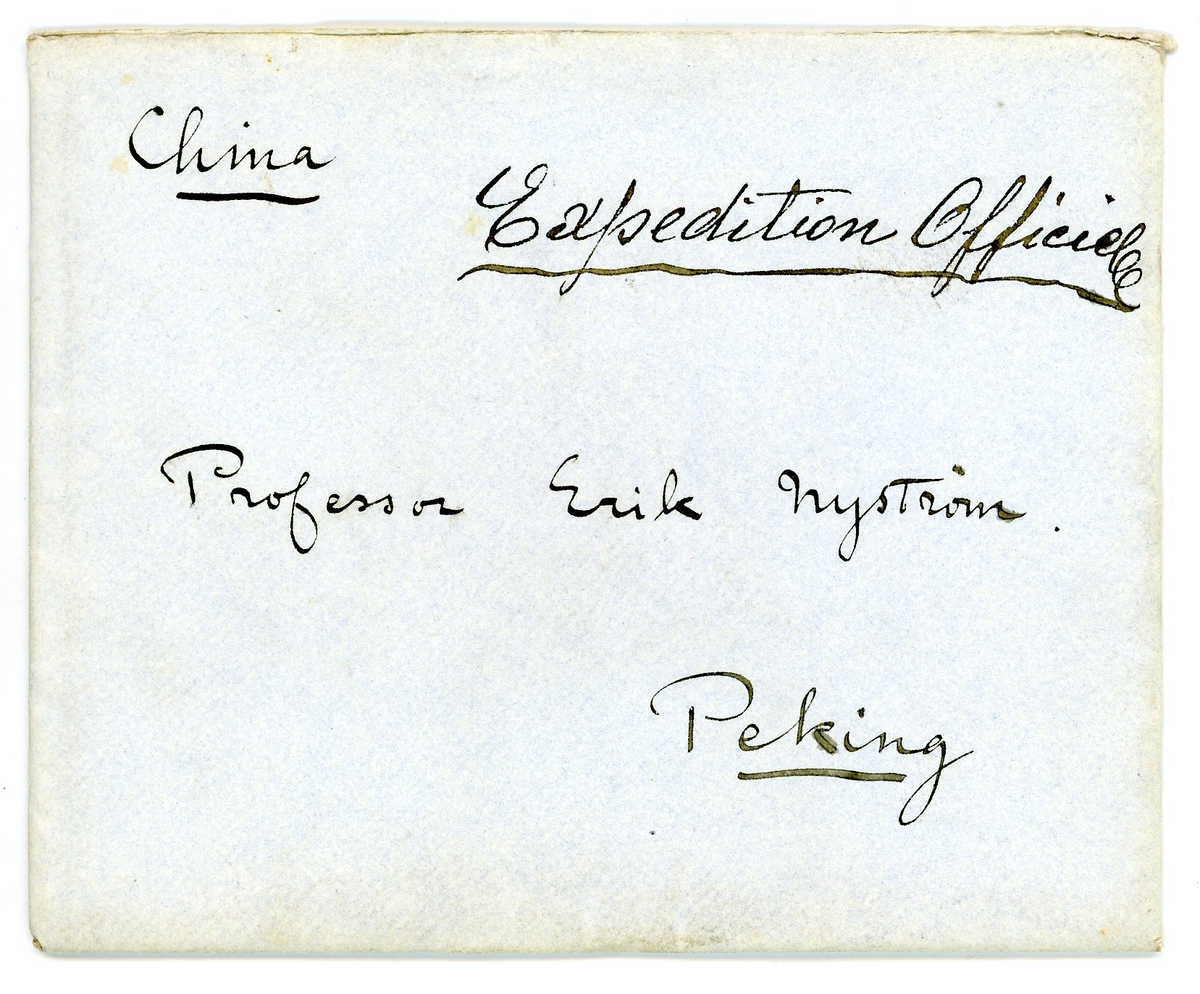 China
Expedition Officielle
Professor Erik Nyström.
Peking